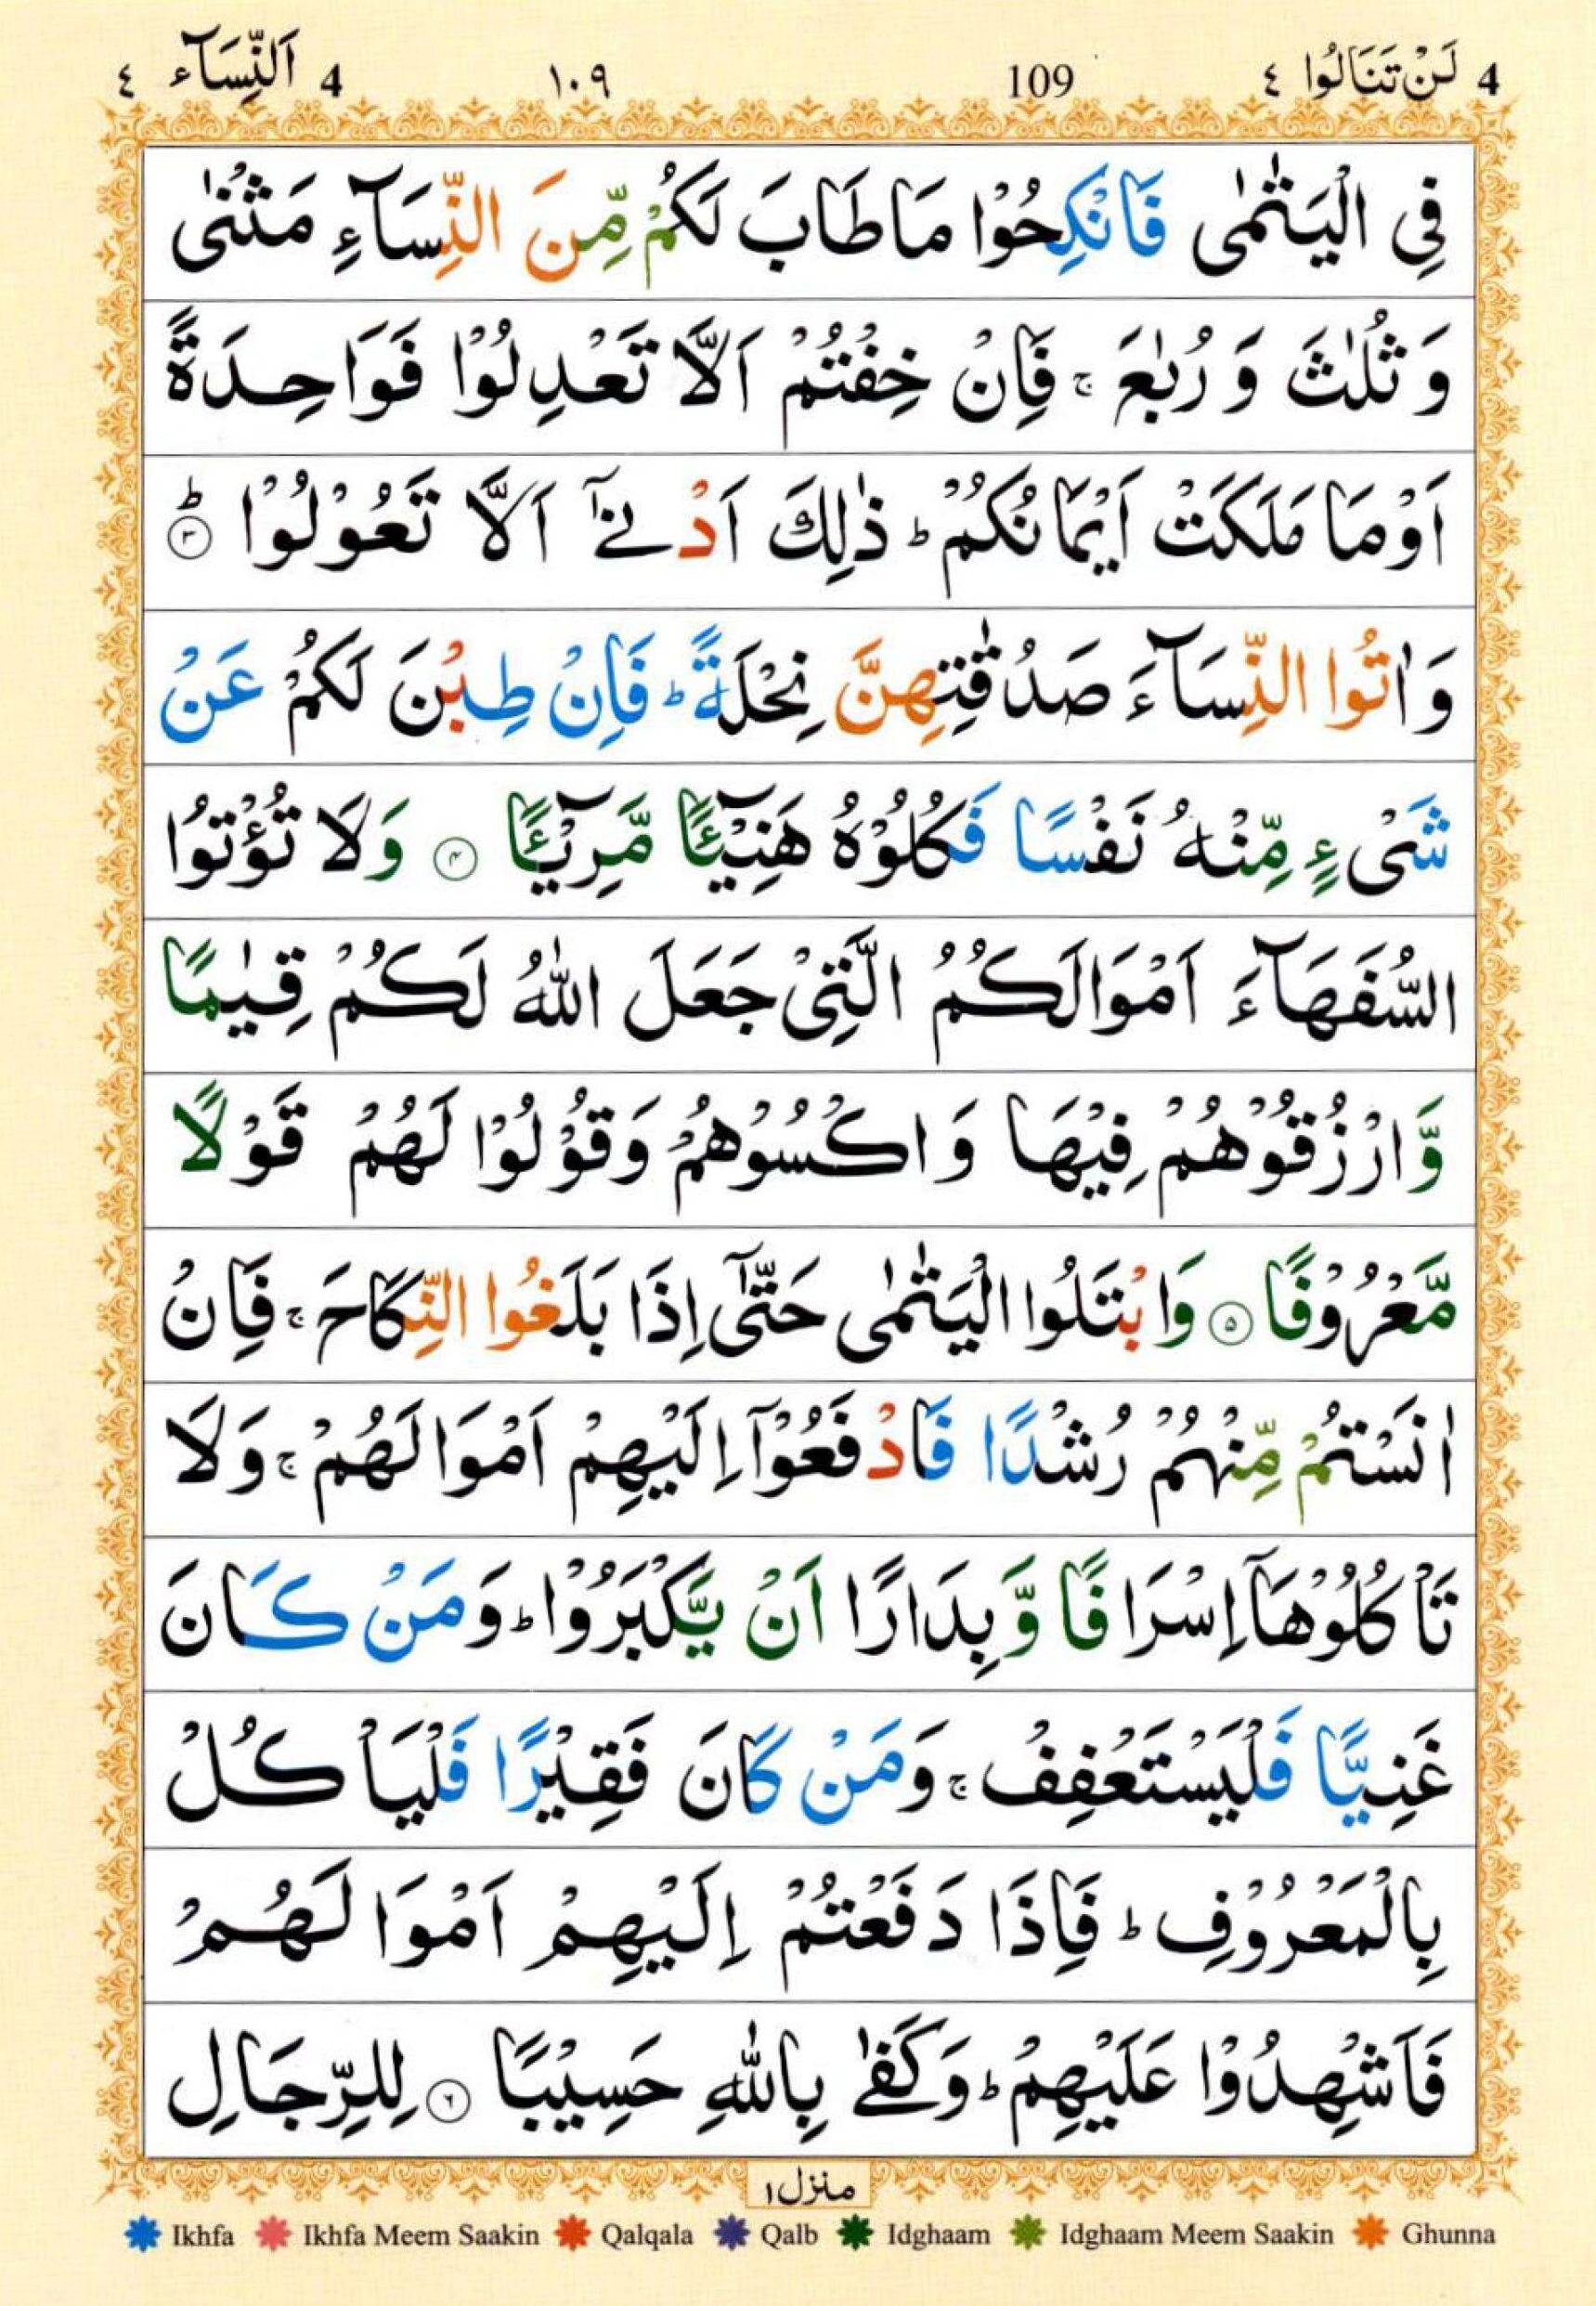 4 لَنْ تَنَالُوا ٤ 109 ١٠٩ 4 اَلنِّسَآء ٤
فِي الْيَتٰمٰى فَانْكِحُوْا مَا طَابَ لَكُمْ مِّنَ النِّسَآءِ مَثْنٰى
وَ ثُلٰثَ وَ رُبٰعَ ۚ فَاِنْ خِفْتُمْ اَلَّا تَعْدِلُوْا فَوَاحِدَةً
اَوْ مَا مَلَكَتْ اَيْمَانُكُمْ ؕ ذٰلِكَ اَدْنٰۤى اَلَّا تَعُوْلُوْا ؕ ﴿۳﴾
وَ اٰتُوا النِّسَآءَ صَدُقٰتِهِنَّ نِحْلَةً ؕ فَاِنْ طِبْنَ لَكُمْ عَنْ
شَیْءٍ مِّنْهُ نَفْسًا فَكُلُوْهُ هَنِيْٓـًٔا مَّرِيْٓـًٔا ﴿۴﴾ وَلَا تُؤْتُوا
السُّفَهَآءَ اَمْوَالَكُمُ الَّتِیْ جَعَلَ اللّٰهُ لَكُمْ قِيٰمًا
وَّ ارْزُقُوْهُمْ فِيْهَا وَ اكْسُوْهُمْ وَقُوْلُوْا لَهُمْ قَوْلًا
مَّعْرُوْفًا ﴿۵﴾ وَ ابْتَلُوا الْيَتٰمٰى حَتّٰۤى اِذَا بَلَغُوا النِّكَاحَ ۚ فَاِنْ
اٰنَسْتُمْ مِّنْهُمْ رُشْدًا فَادْفَعُوْۤا اِلَيْهِمْ اَمْوَالَهُمْ ۚ وَلَا
تَاْكُلُوْهَاۤ اِسْرَافًا وَّ بِدَارًا اَنْ يَّكْبَرُوْا ؕ وَمَنْ كَانَ
غَنِيًّا فَلْيَسْتَعْفِفْ ۚ وَمَنْ كَانَ فَقِيْرًا فَلْيَاْكُلْ
بِالْمَعْرُوْفِ ؕ فَاِذَا دَفَعْتُمْ اِلَيْهِمْ اَمْوَالَهُمْ
فَاَشْهِدُوْا عَلَيْهِمْ ؕ وَكَفٰى بِاللّٰهِ حَسِيْبًا ﴿۶﴾ لِلرِّجَالِ
منزل ١
Ikhfa Ikhfa Meem Saakin Qalqala Qalb Idghaam Idghaam Meem Saakin Ghunna